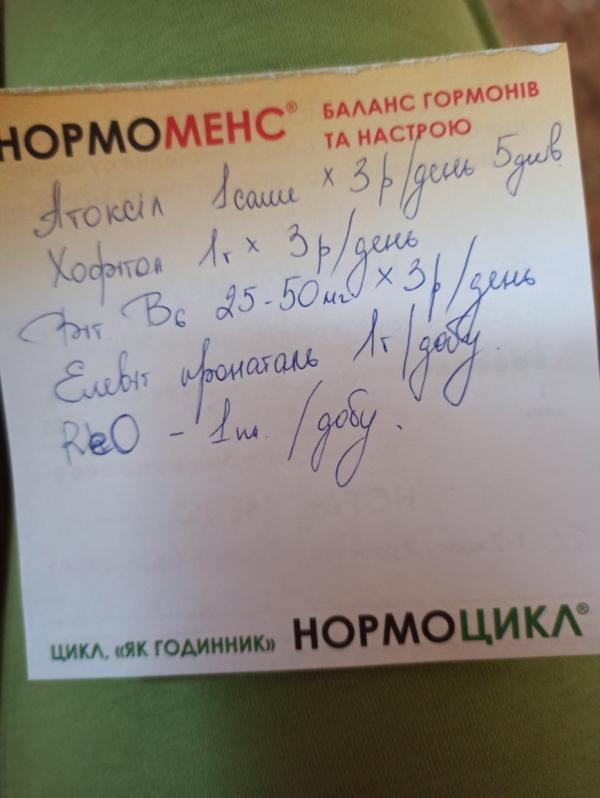 НОРМОМЕНС® БАЛАНС ГОРМОНІВ
ТА НАСТРОЮ
Атоксіл 1 саше × 3 р/день 5 днів
Хофітол 1т × 3 р/день
Віт. B6 25-50 мг × 3 р/день
Елевіт пронаталь 1т/добу.
- 1 /добу.
ЦИКЛ, «ЯК ГОДИННИК» НОРМОЦИКЛ®